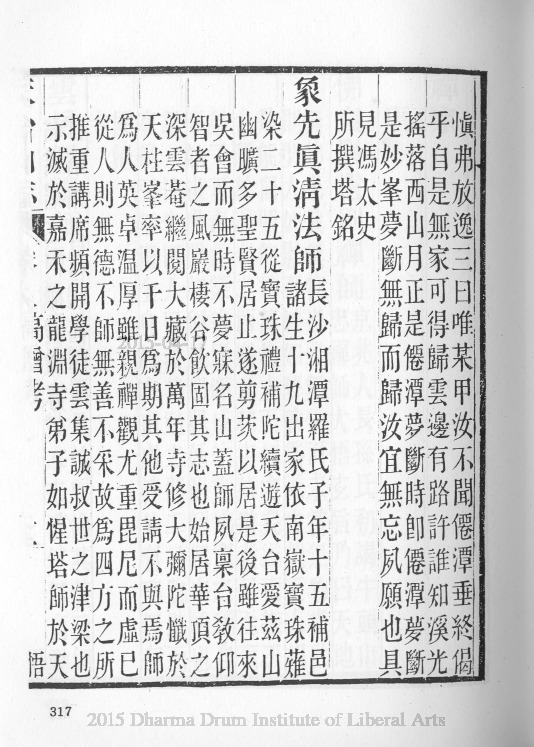 愼弗放逸三曰唯某甲汝不聞僊潭垂終偈
乎自是無家可得歸雲邊有路許誰知溪光
搖落西山月正是僊潭夢斷時卽僊潭夢斷
是妙峯夢斷無歸而歸汝宜無忘夙願也具
見馮太史
所撰塔銘
象先眞淸法師長沙湘潭羅氏子年十五補邑
諸生十九出家依南嶽寶珠薙
染二十五從寶珠禮補陀續遊天台愛茲山
幽曠多聖賢居止遂剪茨以居是後雖往來
吳會而無時不夢寐名山蓋師夙稟台敎仰
智者之風巖棲谷飮固其志也始居華頂之
深雲菴繼閱大藏於萬年寺修大彌陀懺於
天柱峯率以千日爲期其他受請不與焉師
爲人英卓温厚雖親禪觀尤重毘尼而虛己
從人則無德不師無善不采故爲四方之所
推重講席頻開學徒雲集誠叔世之津梁也
示滅於嘉禾之龍淵寺弟子如惺塔師於天
高僧考
317
2015 Dharma Drum Institute of Liberal Arts